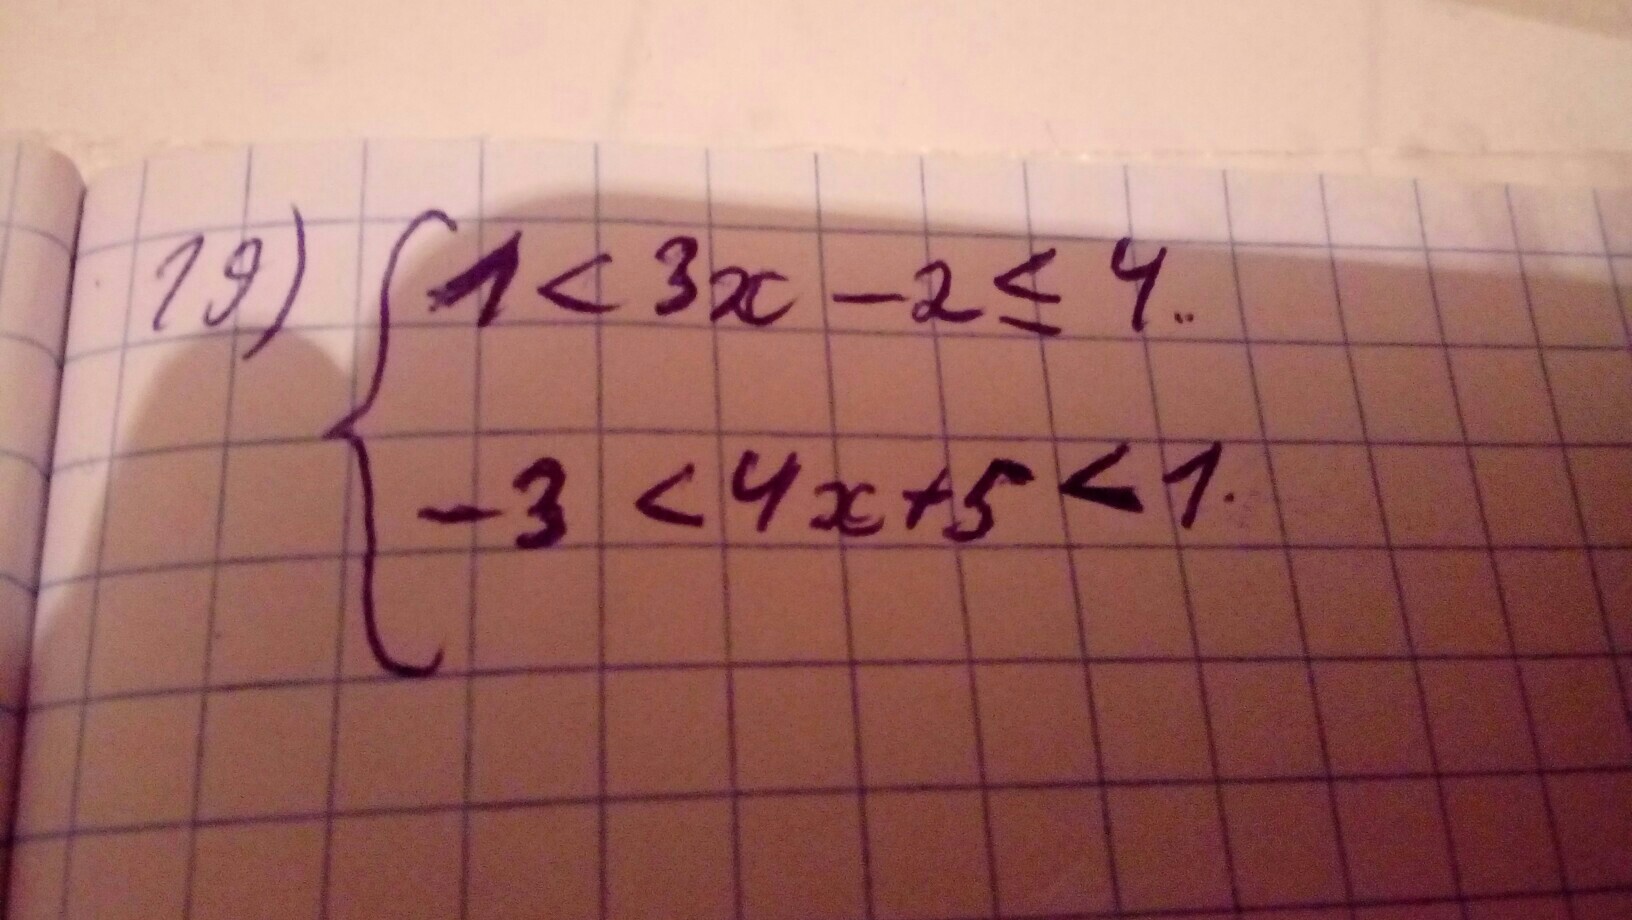 19) { 1 < 3x - 2 ≤ 4..
-3 < 4x + 5 < 1.